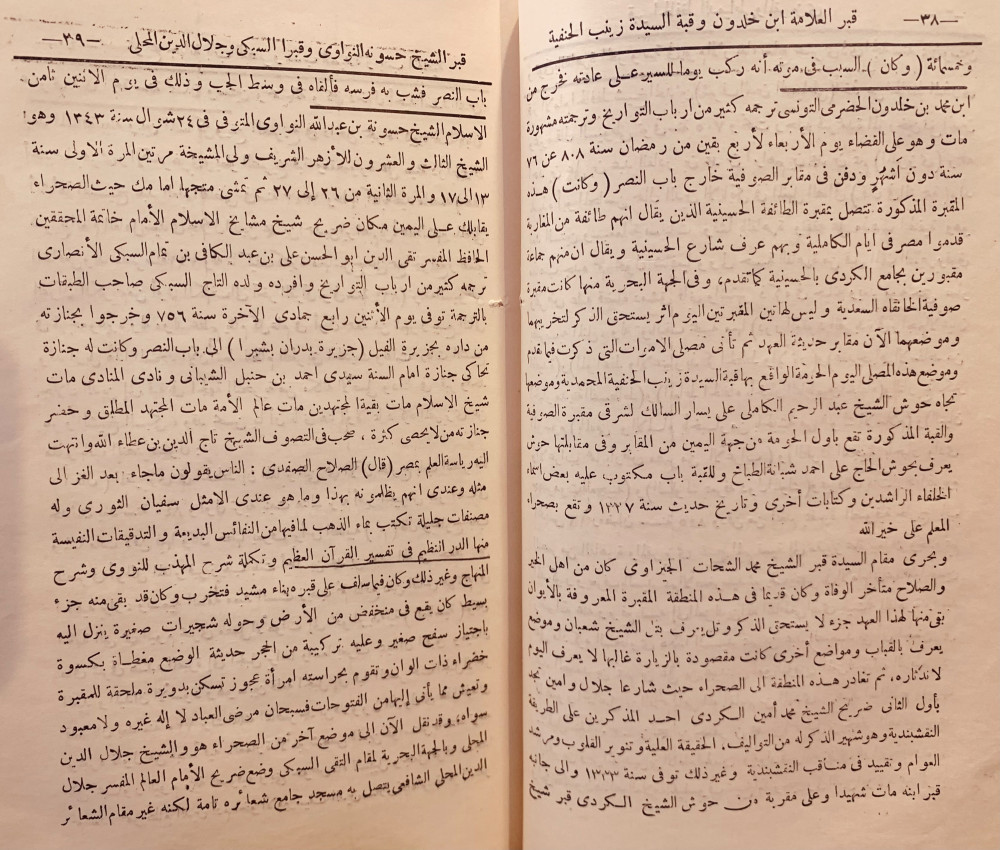 —٣٨— قبر العلامة ابن خلدون وقبة السيدة زينب الحنفية
وخمسمائة (وكان) السبب فى موته أنه ركب يوما للسير على عادته نخرج من
ابن محمد بن خلدون الحضرمى التونسى ترجمه كثير من ارباب التواريخ وترجمته مشهورة
مات وهو على القضاء يوم الأربعاء لأربع بقين من رمضان سنة ٨٠٨ عن ٧٦
سنة دون أشهرٍ ودفن فى مقابر الصوفية خارج باب النصر (وكانت) هذه
المقبرة المذكورة تتصل بمقبرة الطائفة الحسينية الذين يقال انهم طائفة من المغاربة
قدموا مصر فى ايام الكاملية وبهم عرف شارع الحسينية ويقال ان منهم جماعة
مقبورين بجامع الكردى بالحسينية كما تقدم، وفى الجهة البحرية منها كانت مقبرة
صوفية الخانقاه السعدية وليس لهاتين المقبرتين اليوم اثر يستحق الذكر لتخريبهما
وموضعهما الآن مقابر حديثة العهد ثم تأتى مصلى الاموات التى ذكرت فيما تقدم
وموضع هذه المصلى اليوم الحومة الواقع بها قبة السيدة زينب الحنفية المحمدية وموضعها
تجاه حوش الشيخ عبد الرحيم الكاملى على يسار السالك لشرقى مقبرة الصوفة
والقبة المذكورة تقع باول الحومة من جهة اليمين من المقابر وفى مقابلتها حوش
يعرف بحوش الحاج على احمد شبانة الطباخ وللقبة باب مكتوب عليه بعض اسماء
الخلفاء الراشدين وكتابات أخرى وتاريخ حديث سنة ١٣٢٧ وتقع بصحراء
المعلم على خير الله
وبحرى مقام السيدة قبر الشيخ محمد الشحات الجيزاوى كان من اهل الخير
والصلاح متأخر الوفاة وكان قديما فى هذه المنطقة المقبرة المعروفة بالأيوان
بقى منها لهذا العهد جزء لا يستحق الذكر وتل يعرف بتل الشيخ شعبان وموضع
يعرف بالقباب ومواضع أخرى كانت مقصودة بالزيارة غالبها لا يعرف اليوم
لاندثاره. ثم تغادر هذه المنطقة الى الصحراء حيث شارعا جلال وامين تجد
بأول الثانى ضريح الشيخ محمد أمين الكردى احد المذكرين على الطريقة
النقشبندية وهو شهير الذكر له من التواليف. الحقيقة العلية وتنوير القلوب ومرشد
العوام وتقييد فى مناقب النقشبندية وغير ذلك توفى سنة ١٣٣٣ والى جانبه
قبر ابنه مات شهيدا وعلى مقربة من حوش الشيخ الكردى قبر شيخ
قبر الشيخ حسونه النواوى وقبرا السبكى وجلال الدين المحلى —٣٩—
باب النصر فشب به فرسه فألقاه فى وسط الجب وذلك فى يوم الاثنين ثامن
الاسلام الشيخ حسونة بن عبدالله النواوى المتوفى فى ٢٤ شوال سنة ١٣٤٣ وهو
الشيخ الثالث والعشرون للأزهر الشريف ولى المشيخة مرتين المرة الاولى سنة
١٣ الى ١٧ والمرة الثانية من ٢٦ إلى ٢٧ ثم تمشى متجها امامك حيث الصحراء
يقابلك على اليمين مكان ضريح شيخ مشايخ الاسلام الأمام خاتمة المحققين
الحافظ المفسر تقى الدين ابو الحسن على بن عبد الكافى بن تمام السبكى الأنصارى
ترجمه كثير من ارباب التواريخ وافرده ولده التاج السبكى صاحب الطبقات
بالترجمة توفى يوم الأثنين رابع جمادى الآخرة سنة ٧٥٦ وخرجوا بجنازته
من داره بجزيرة الفيل (جزيرة بدران بشبرا) الى باب النصر وكانت له جنازة
تحاكى جنازة امام السنة سيدى احمد بن حنبل الشيبانى ونادى المنادى مات
شيخ الاسلام مات بقية المجتهدين مات عالم الأمة مات المجتهد المطلق وحضر
جنازته من لا يحصى كثرة، صحب فى التصوف الشيخ تاج الدين بن عطاء الله وانتهت
اليه رياسة العلم بمصر (قال) الصلاح الصفدى : الناس يقولون ماجاء بعد الغز الى
مثله وعندى انهم يظلمونه بهذا وما هو عندى الامثل سفيان الثورى وله
مصنفات جليلة تكتب بماء الذهب لما فيها من النفائس البديعة والتدقيقات النفيسة
منها الدر النظيم فى تفسير القرآن العظيم وتكملة شرح المهذب للنووى وشرح
المنهاج وغير ذلك وكان فيما سلف على قبره بناء مشيد فتخرب وكان قد بقى منه جزء
بسيط كان يقع فى منخفض من الأرض وحوله شجيرات صغيرة ينزل اليه
باجتياز سفح صغير وعليه تركيبة من الحجر حديثة الوضع مغطاة بكسوة
خضراء ذات الوان وتقوم بحراسته امرأة عجوز تسكن بدويرة ملحقة للمقبرة
وتعيش مما يأتى إليها من الفتوحات فسبحان مرضى العباد لا إله غيره ولا معبود
سواه، وقد نقل الآن الى موضع آخر من الصحراء هو والشيخ جلال الدين
المحلى وبالجهة البحرية لمقام التقى السبكى وضع ضريح الأمام العالم المفسر جلال
الدين المحلى الشافعى يتصل به مسجد جامع شعائره تامة لكنه غير مقام الشعائر